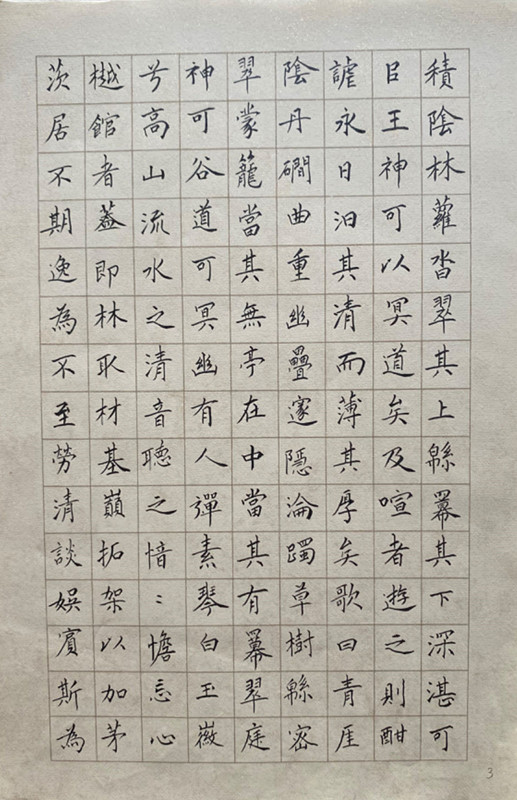 積陰林蘿沓翠其上緜羃其下深湛可
㠯王神可以冥道矣及喧者遊之則酣
謔永日汩其清而薄其厚矣歌曰青厓
陰丹磵曲重幽疊邃隱淪躅草樹緜密
翠蒙籠當其無亭在中當其有羃翠庭
神可谷道可冥幽有人彈素琴白玉徽
兮高山流水之清音聽之愔〻憺忘心
樾館者蓋即林取材基巔拓架以加茅
茨居不期逸為不至勞清談娛賓斯為
3